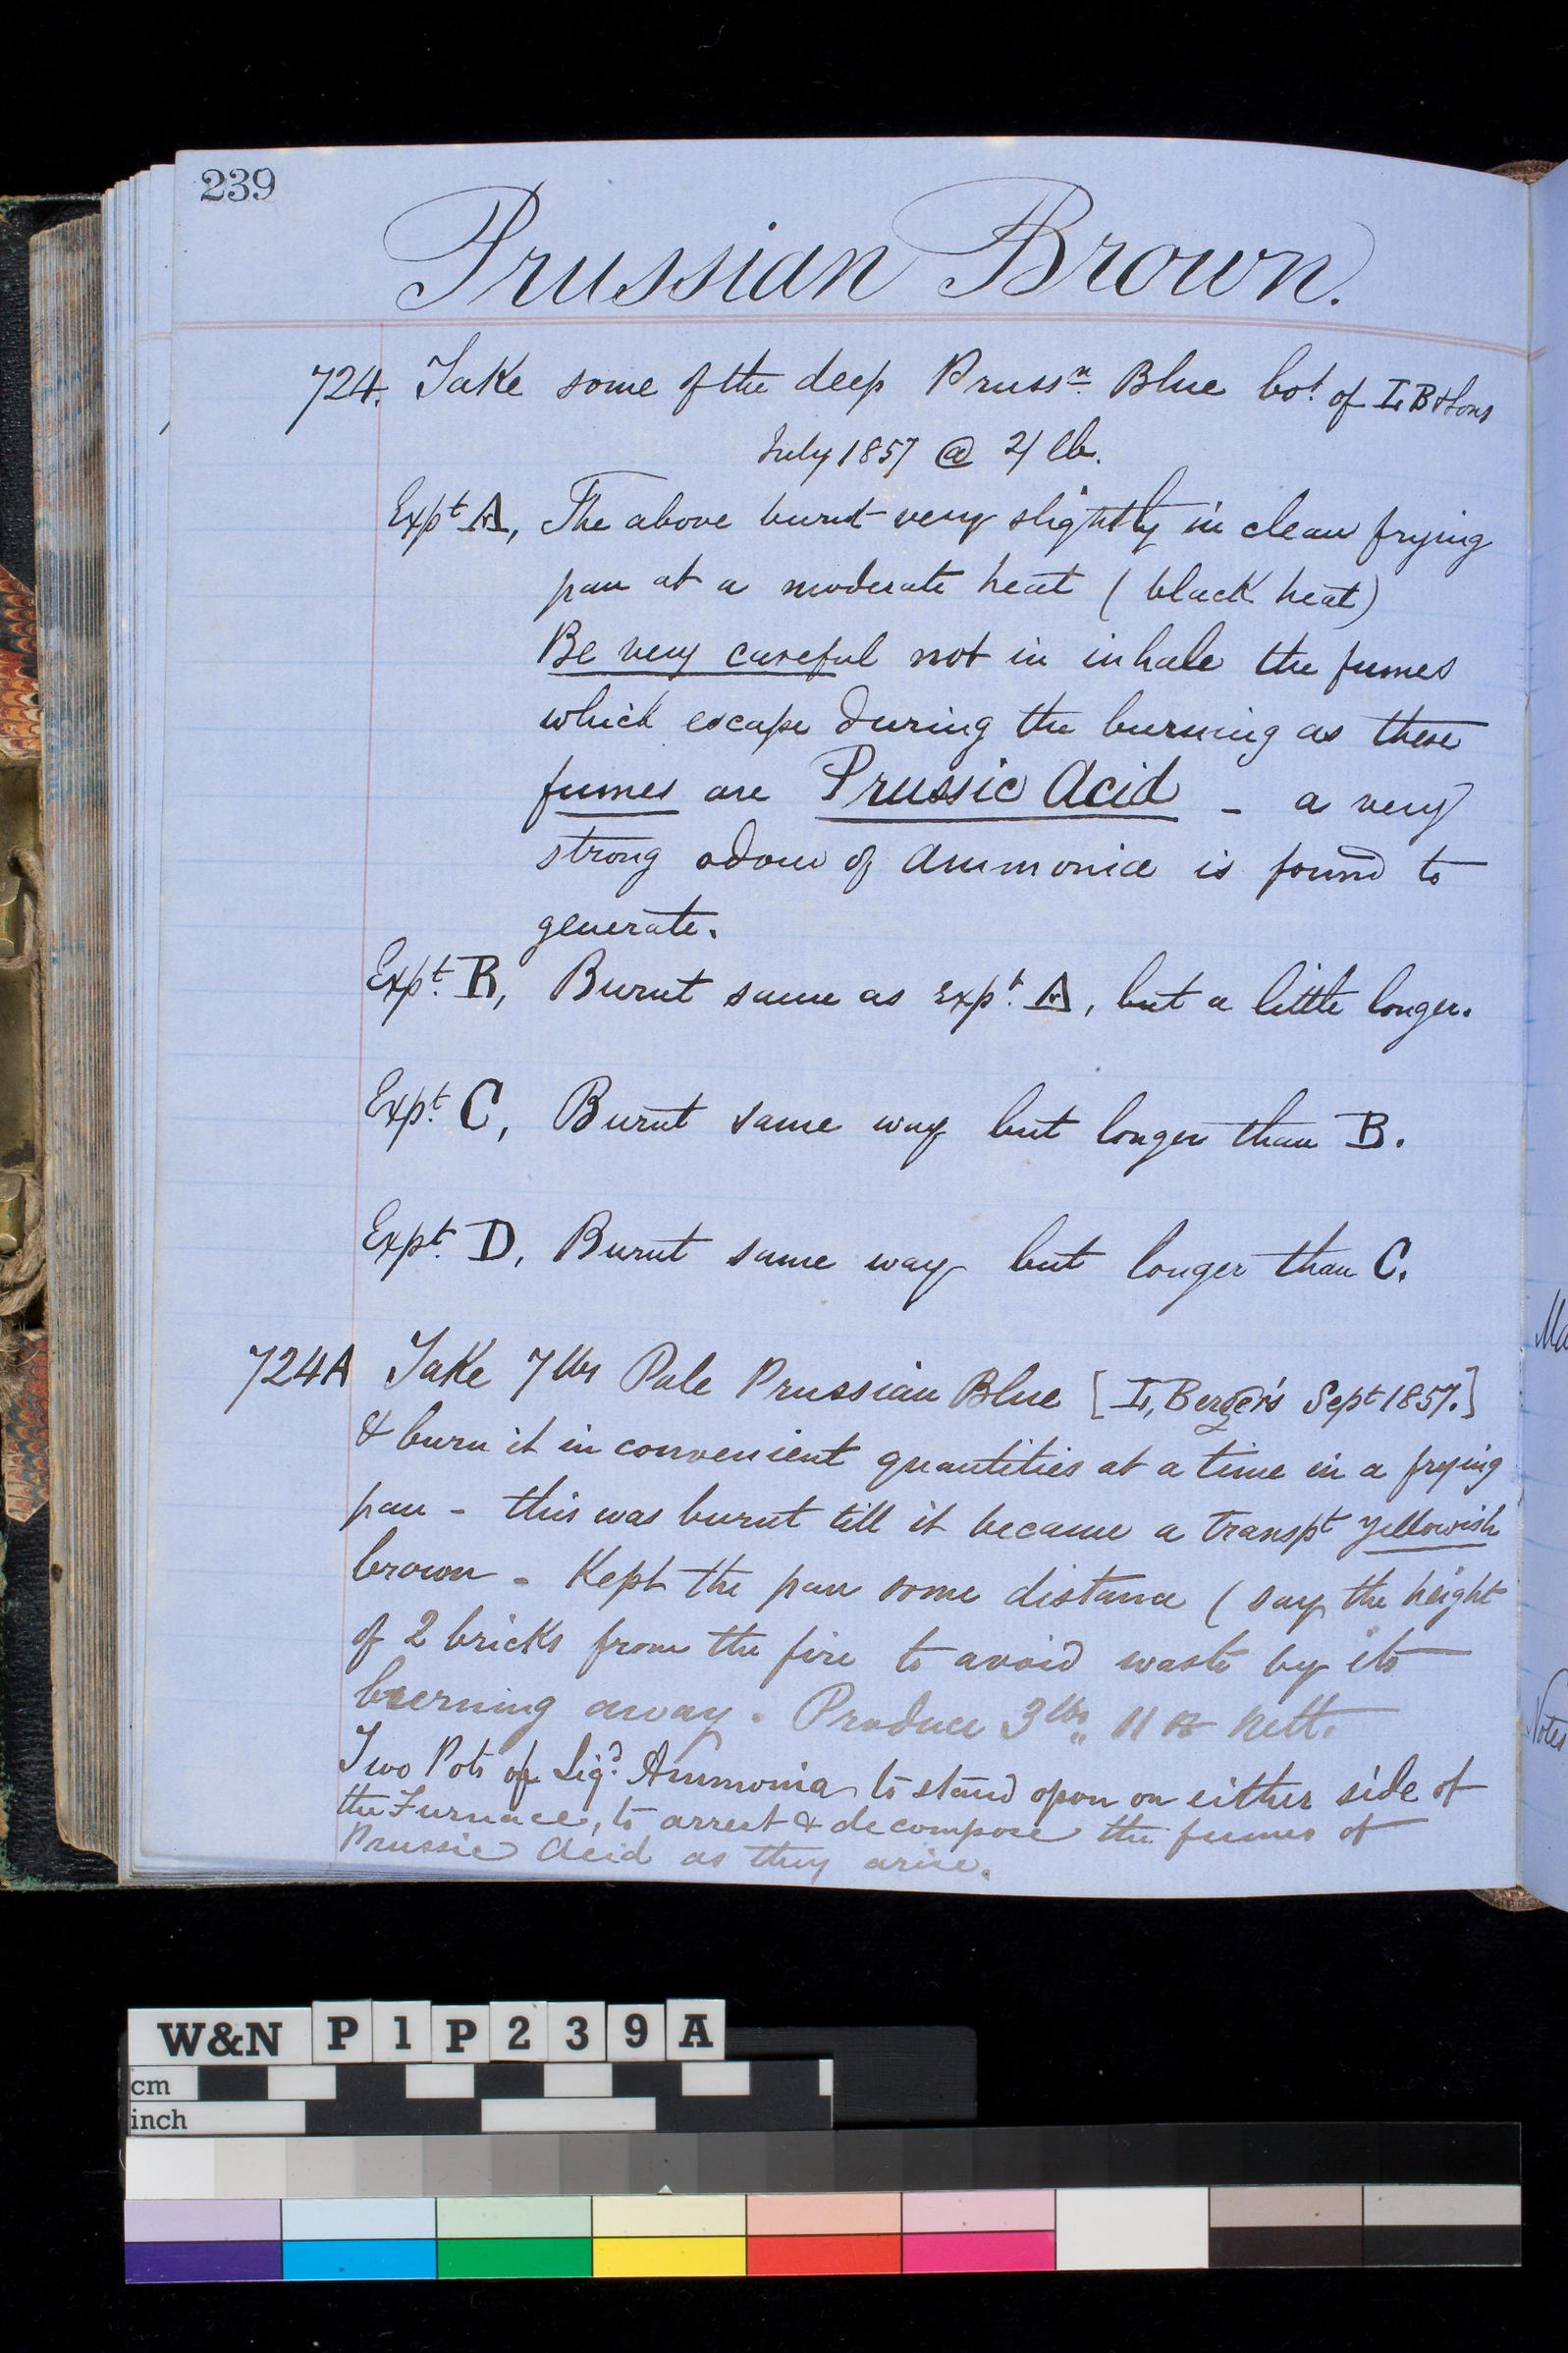 239
Prussian Brown.
724. Take some of the deep Prussn. Blue bot. of L, B & Sons
July 1857 @ 2/ lb.
Expt A, The above burnt very slightly in clean frying
pan at a moderate heat (black heat)
Be very careful not in inhale the fumes
which escape during the burning as these
fumes are Prussic Acid - a very
strong odour of Ammonia is found to
generate.
Expt. B, Burnt same as Expt. A, but a little longer.
Expt. C, Burnt same way but longer than B.
Expt. D, Burnt same way but longer than C.
724A Take 7 lbs Pale Prussian Blue [L, Berger's Sept 1857.]
& burn it in convenient quantities at a time in a frying
pan - this was burnt till it became a transpt yellowish
brown - Kept the pan some distance (say the height
of 2 bricks from the fire to avoid waste by its
burning away. Produce 3 lbs,, 11 oz nett.
Two Pots of Liqd. Ammonia to stand open on either side of
the Furnace, to arrest & decompose the fumes of
Prussic Acid as they arise.
Ma
Notes
W&N P1P239A
cm
inch